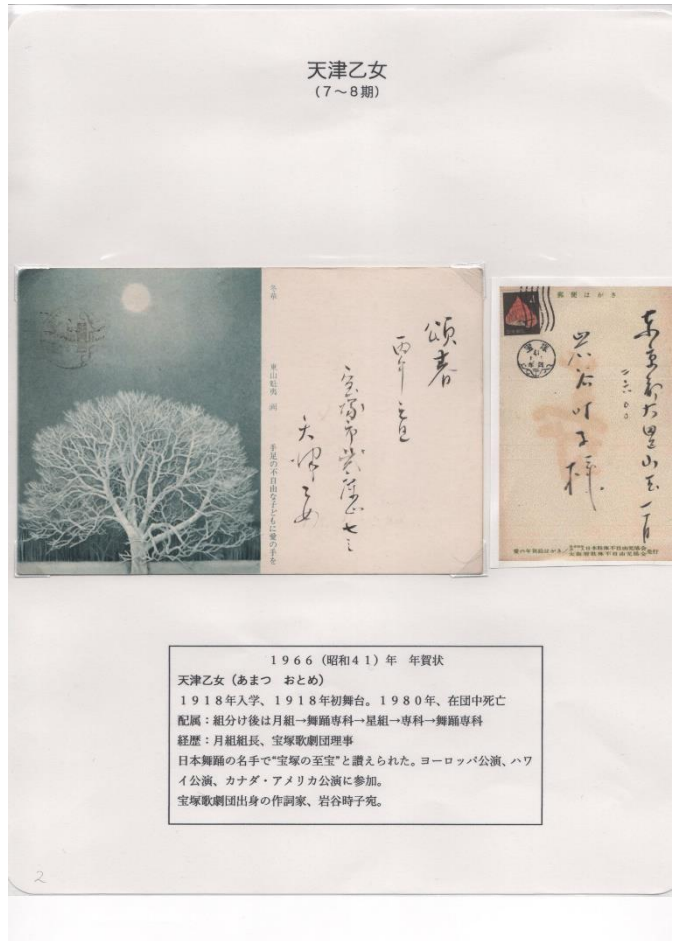 天津乙女
（７～８期）
冬華
東山魁夷 画
手足の不自由な子どもに愛の手を
頌春
丙午元旦
天津乙女
郵便はがき
岩谷時子様
１９６６（昭和４１）年　年賀状
天津乙女（あまつ　おとめ）
１９１８年入学、１９１８年初舞台。１９８０年、在団中死亡
配属：組分け後は月組→舞踊専科→星組→専科→舞踊専科
経歴：月組組長、宝塚歌劇団理事
日本舞踊の名手で“宝塚の至宝”と讃えられた。ヨーロッパ公演、ハワ
イ公演、カナダ・アメリカ公演に参加。
宝塚歌劇団出身の作詞家、岩谷時子宛。
2